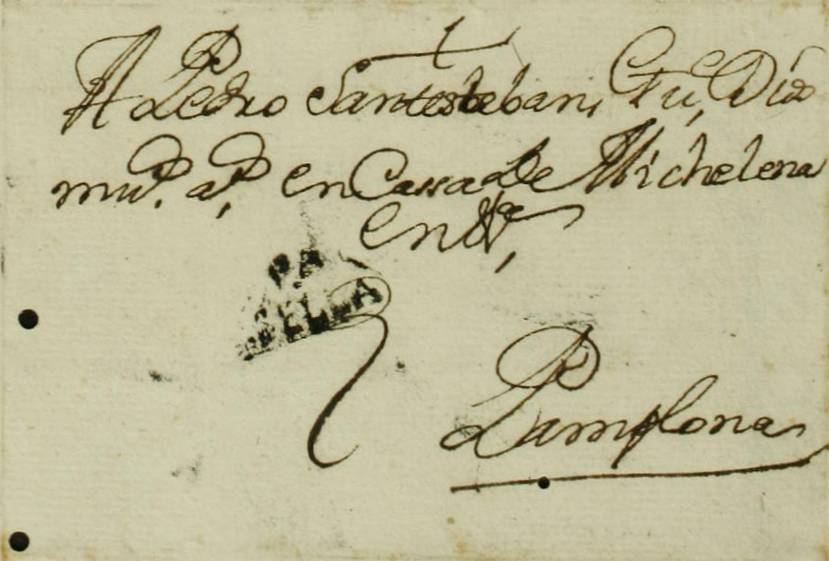 A Pedro Santesteban, Gue, Dios
mu.s a.s, en Cassa de Michelena
en
ELLA
Pamplona